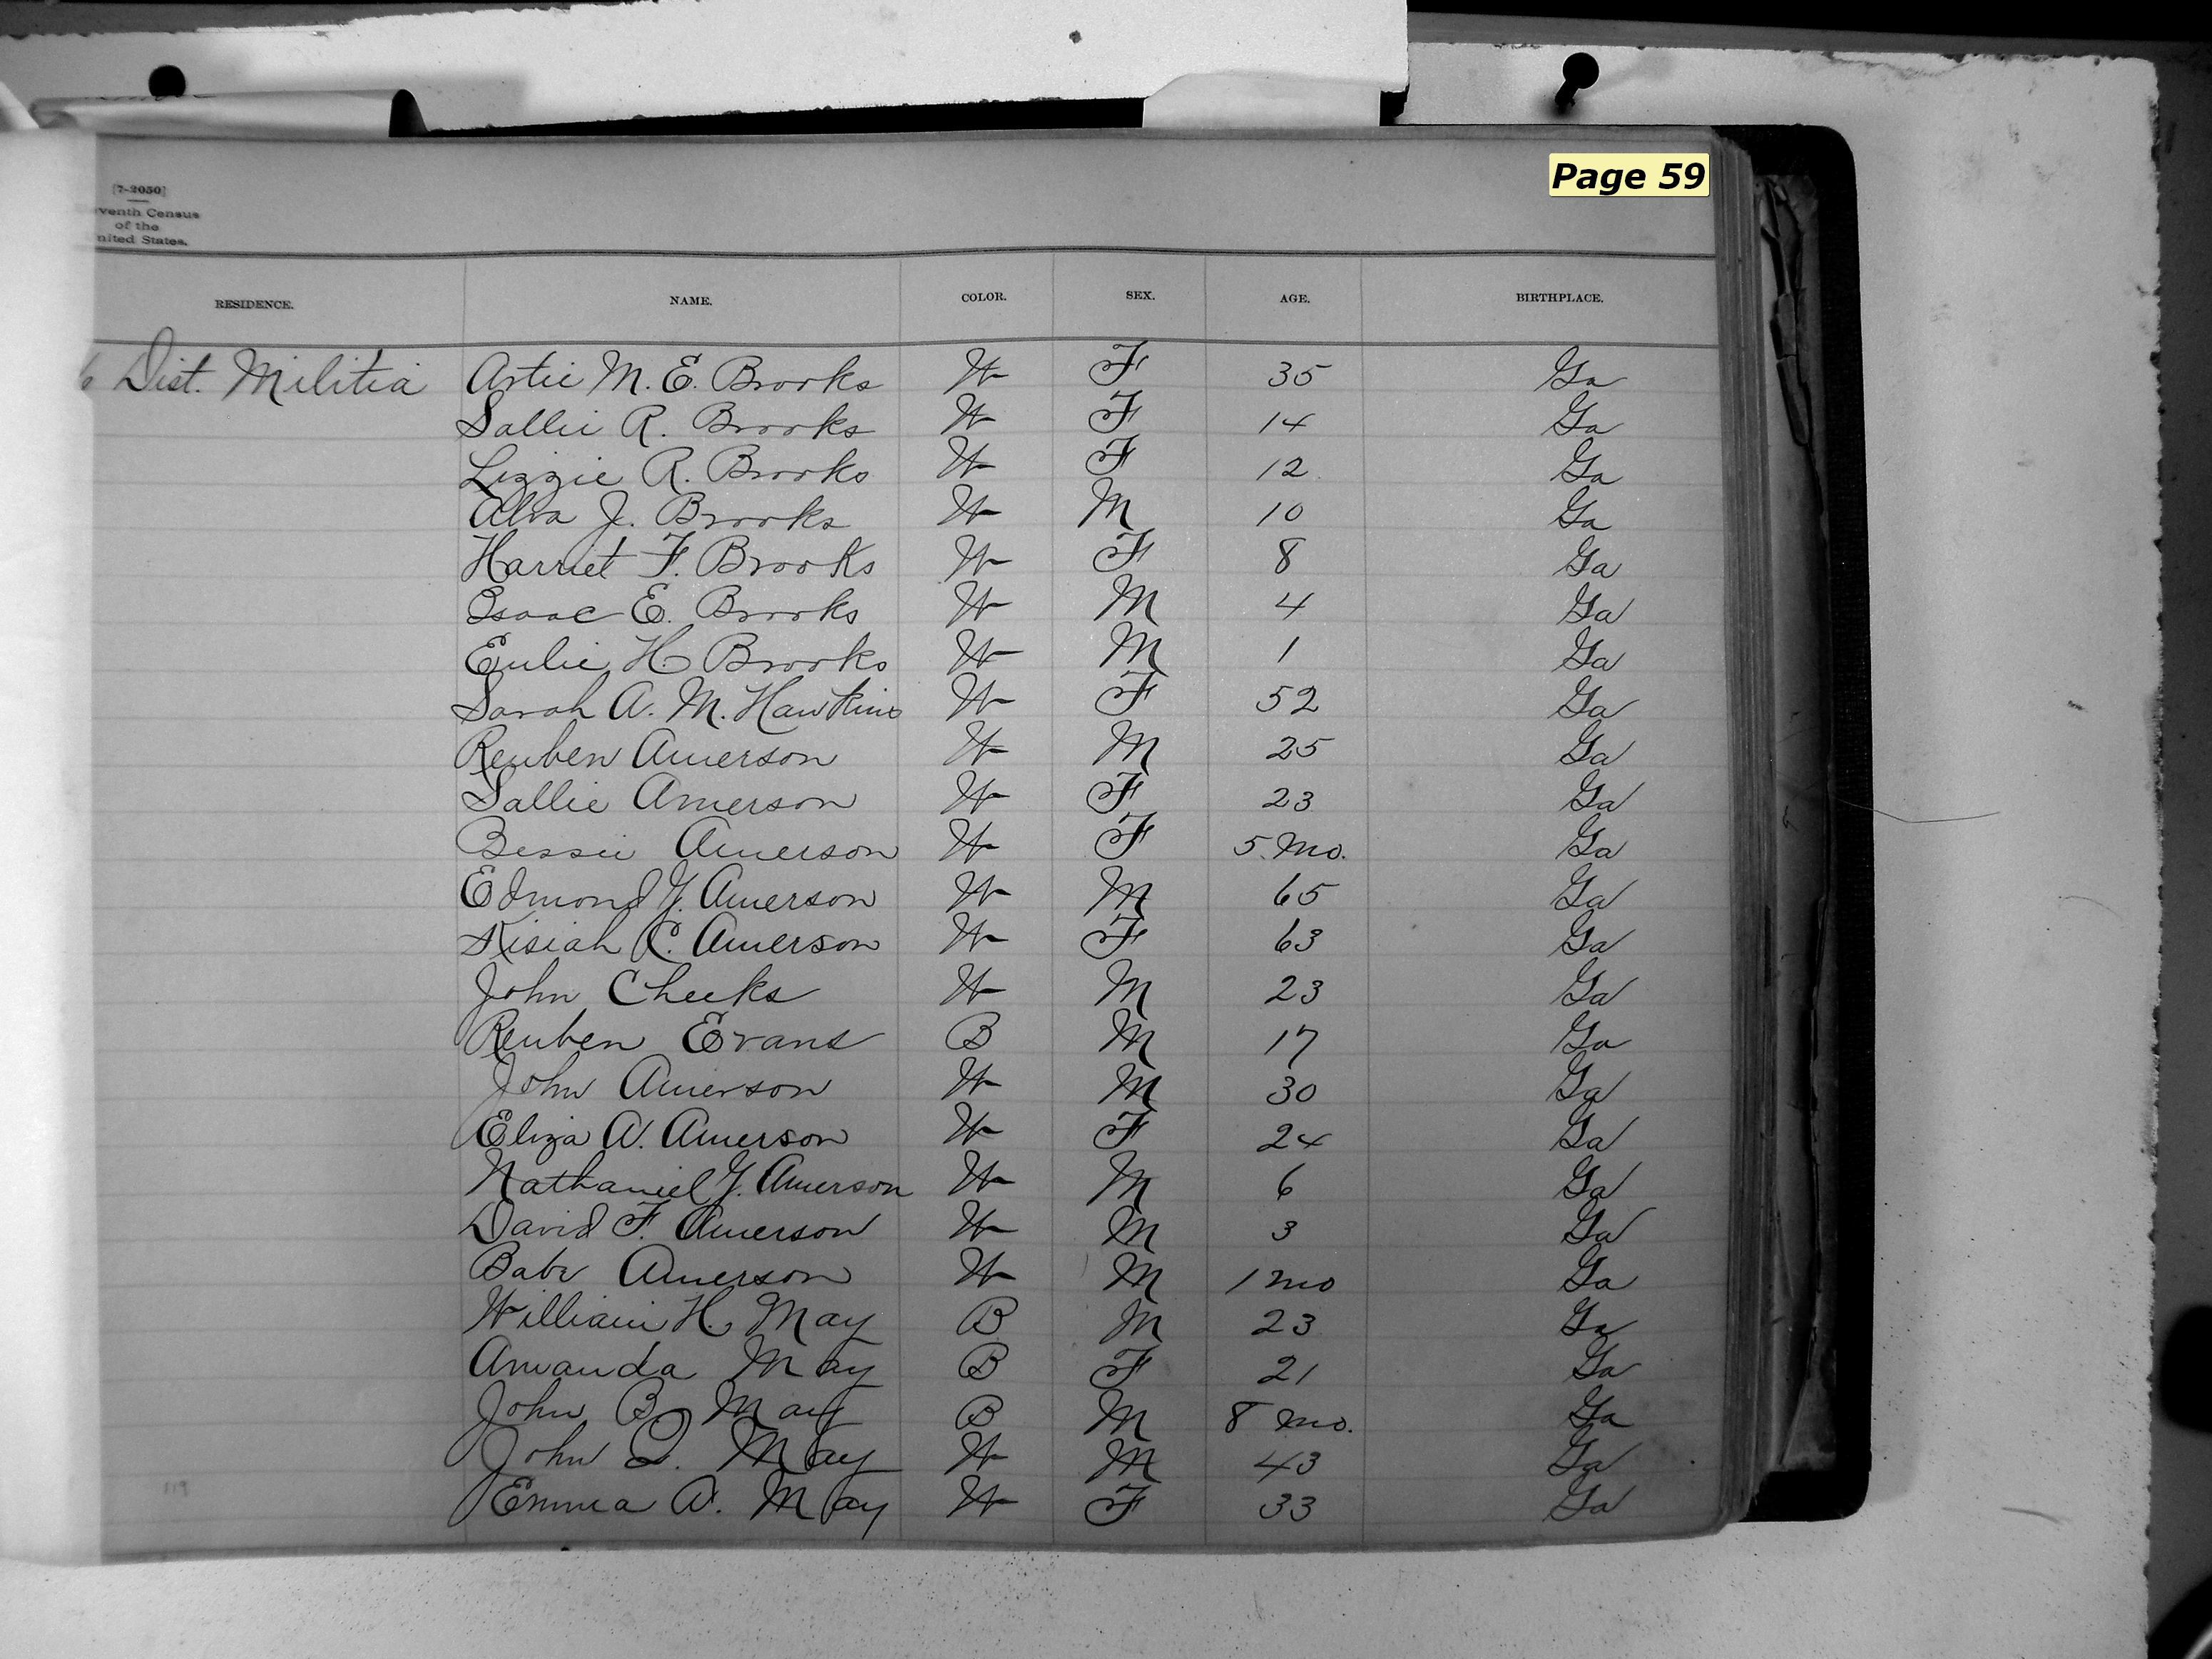 Page 59
[7-2050]
venth Census
of the
nited States.
RESIDENCE. NAME. COLOR. SEX. AGE. BIRTHPLACE.
6 Dist. Militia Artie M. E. Brooks W F 35 Ga
Sallie R. Brooks W F 14 Ga
Lizzie R. Brooks W F 12 Ga
Alva J. Brooks W M 10 Ga
Harriet F. Brooks W F 8 Ga
Isaac E. Brooks W M 4 Ga
Eulie H Brooks W M 1 Ga
Sarah A. M. Hawkins W F 52 Ga
Reuben Amerson W M 25 Ga
Sallie Amerson W F 23 Ga
Bessie Amerson W F 5 Mo. Ga
Edmond Y. Amerson W M 65 Ga
Kisiah C. Amerson W F 63 Ga
John Cheeks W M 23 Ga
Reuben Evans B M 17 Ga
John Amerson W M 30 Ga
Eliza A. Amerson W F 24 Ga
Nathaniel Y. Amerson W M 6 Ga
David F. Amerson W M 3 Ga
Babe Amerson W M 1 mo Ga
William H. May B M 23 Ga
Amanda May B F 21 Ga
John B May B M 8 mo. Ga
John Q. May W M 43 Ga
119 Emma A. May W F 33 Ga